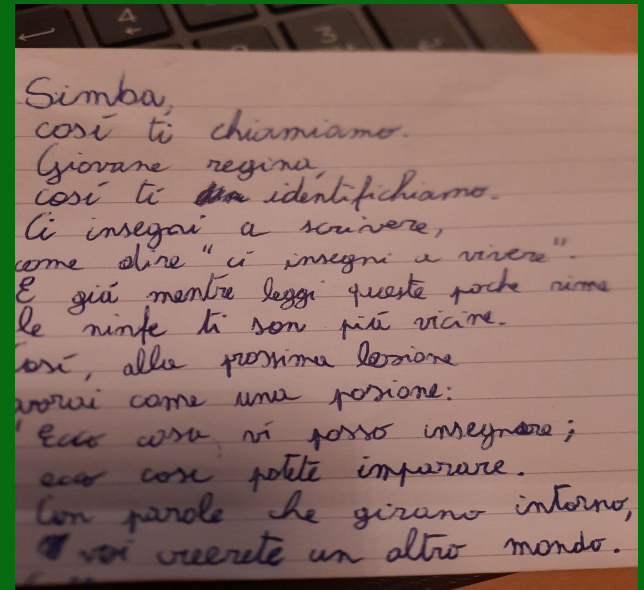 Simba,
cosí ti chiamiamo.
Giovane regina,
cosí ti identifichiamo.
Ci insegni a scrivere,
come dire "ci insegni a vivere".
E giá mentre leggi queste poche rime
le ninfe ti son piú vicine.
osí, alla prossima lezione
avrai come una pozione:
"Ecco cosa vi posso insegnare;
ecco cosa potete imparare.
Con parole che girano intorno,
voi creerete un altro mondo.